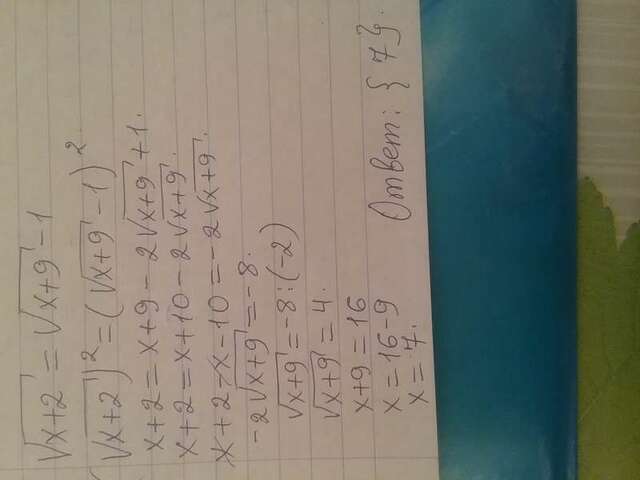 √x+2 = √x+9 - 1
√x+2)² = (√x+9 - 1)²
x+2 = x+9 - 2√x+9 + 1.
x+2 = x+10 - 2√x+9.
x+2-x-10 = -2√x+9.
-2√x+9 = -8.
√x+9 = -8:(-2)
√x+9 = 4.
x+9 = 16
x = 16-9
x = 7.
Ответ: {7}.